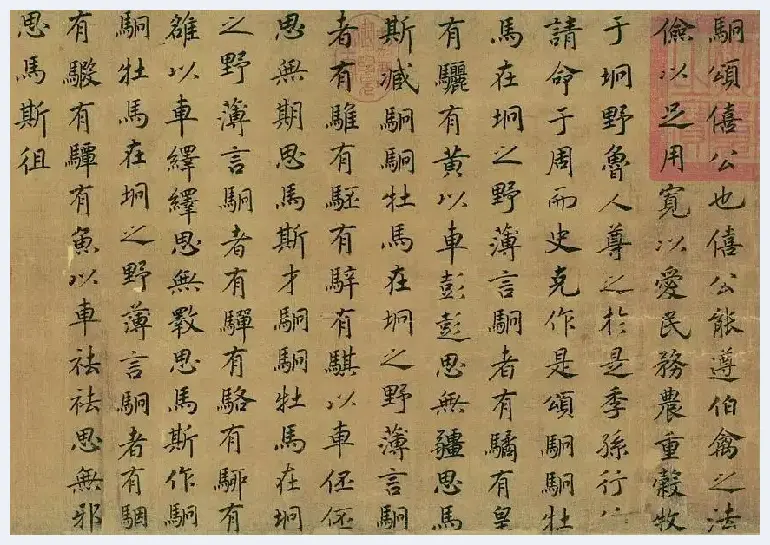 駉頌僖公也僖公能遵伯禽之法
儉以足用寬以愛民務農重穀牧
于坰野魯人尊之於是季孫行
請命于周而史克作是頌駉駉牡
馬在坰之野薄言駉者有驈有皇
有驪有黃以車彭彭思無疆思馬
斯臧駉駉牡馬在坰之野薄言駉
者有騅有駓有騂有騏以車伾伾
思無期思馬斯才駉駉牡馬在坰
之野薄言駉者有驒有駱有駵有
雒以車繹繹思無斁思馬斯作駉
駉牡馬在坰之野薄言駉者有駰
有騢有驔有魚以車祛祛思無邪
思馬斯徂